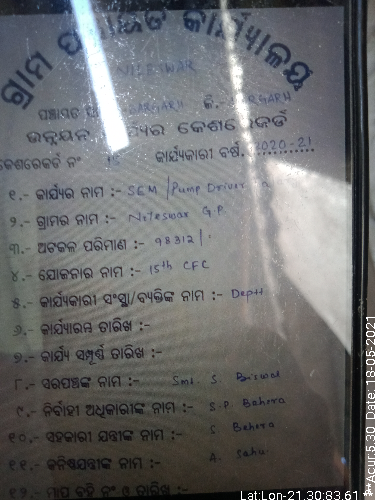 ଗ୍ରାମ ପଞ୍ଚାୟତ କାର୍ଯ୍ୟାଳୟ
NILESWAR
ପଞ୍ଚାୟତ
ଉନ୍ନୟନ କାର୍ଯ୍ୟର କେଶରେକର୍ଡ
କେଶରେକର୍ଡ ନଂ 15 କାର୍ଯ୍ୟକାରୀ ବର୍ଷ. 2020-21
୧.- କାର୍ଯ୍ୟର ନାମ :- SEM /Pump Driver
୨.- ଗ୍ରାମର ନାମ :- Nileswar G.P.
୩.- ଅଟକଳ ପରିମାଣ :- 98312/-
୪.- ଯୋଜନାର ନାମ :- 15th CFC
୫.- କାର୍ଯ୍ୟକାରୀ ସଂସ୍ଥା/ବ୍ୟକ୍ତିଙ୍କ ନାମ :- Deptt
୬.- କାର୍ଯ୍ୟାରମ୍ଭ ତାରିଖ :-
୭.- କାର୍ଯ୍ୟ ସମ୍ପୂର୍ଣ୍ଣ ତାରିଖ :-
୮.- ସରପଞ୍ଚଙ୍କ ନାମ :- Smt. S. Biswal
୯.- ନିର୍ବାହୀ ଅଧିକାରୀଙ୍କ ନାମ :- S.P. Behera
୧୦.- ସହକାରୀ ଯନ୍ତ୍ରୀଙ୍କ ନାମ :- S Behera
୧୧.- କନିଷ୍ଠଯନ୍ତ୍ରୀଙ୍କ ନାମ :- A. Sahu
୧୨.- ମାପ ବହି ନଂ ଓ ତାରିଖ :-
Lat:Lon-21.30:83.61
***Acur:5.30 Date:18-05-2021